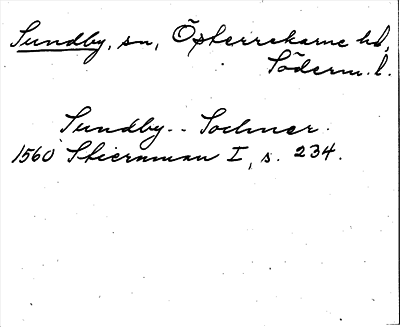 Sundby, sn, Österrekarne hd,
Söderm. l.
Sundby-- Sochner.
1560 Stiernman I, s. 234.